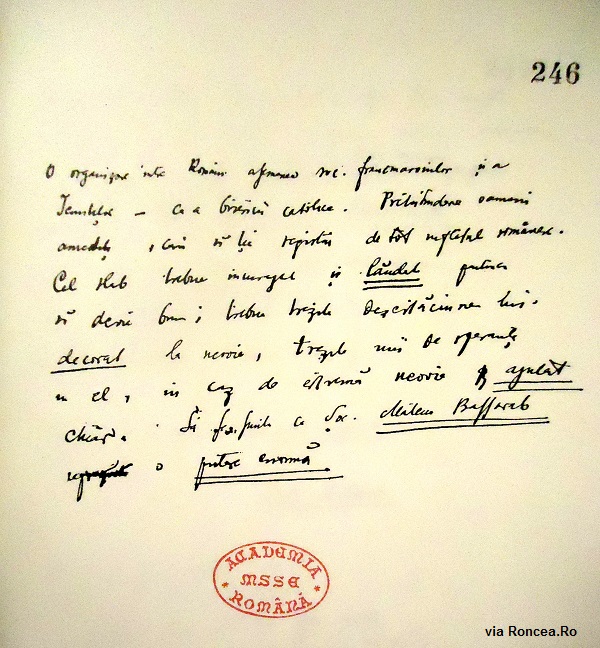 246
O organizare între Români asemenea soc. francmasonilor și a
Iezuiților — ca a bisericii catolice. Pretutindenea oameni
anumiți, cari să ție registru de tot sufletul românesc.
Cel slab trebue incuragiat și lăudat putința
să devie bun; trebue trezită deșertăciunea lui.
decorat la nevoie, trezite mii de speranțe
in el, in caz de estremă nevoie și ajutat
chiar. Să ca Soc. Mateiu Bassarab
o putere enormă
ACADEMIA
MSSE
ROMÂNĂ
via Roncea.Ro